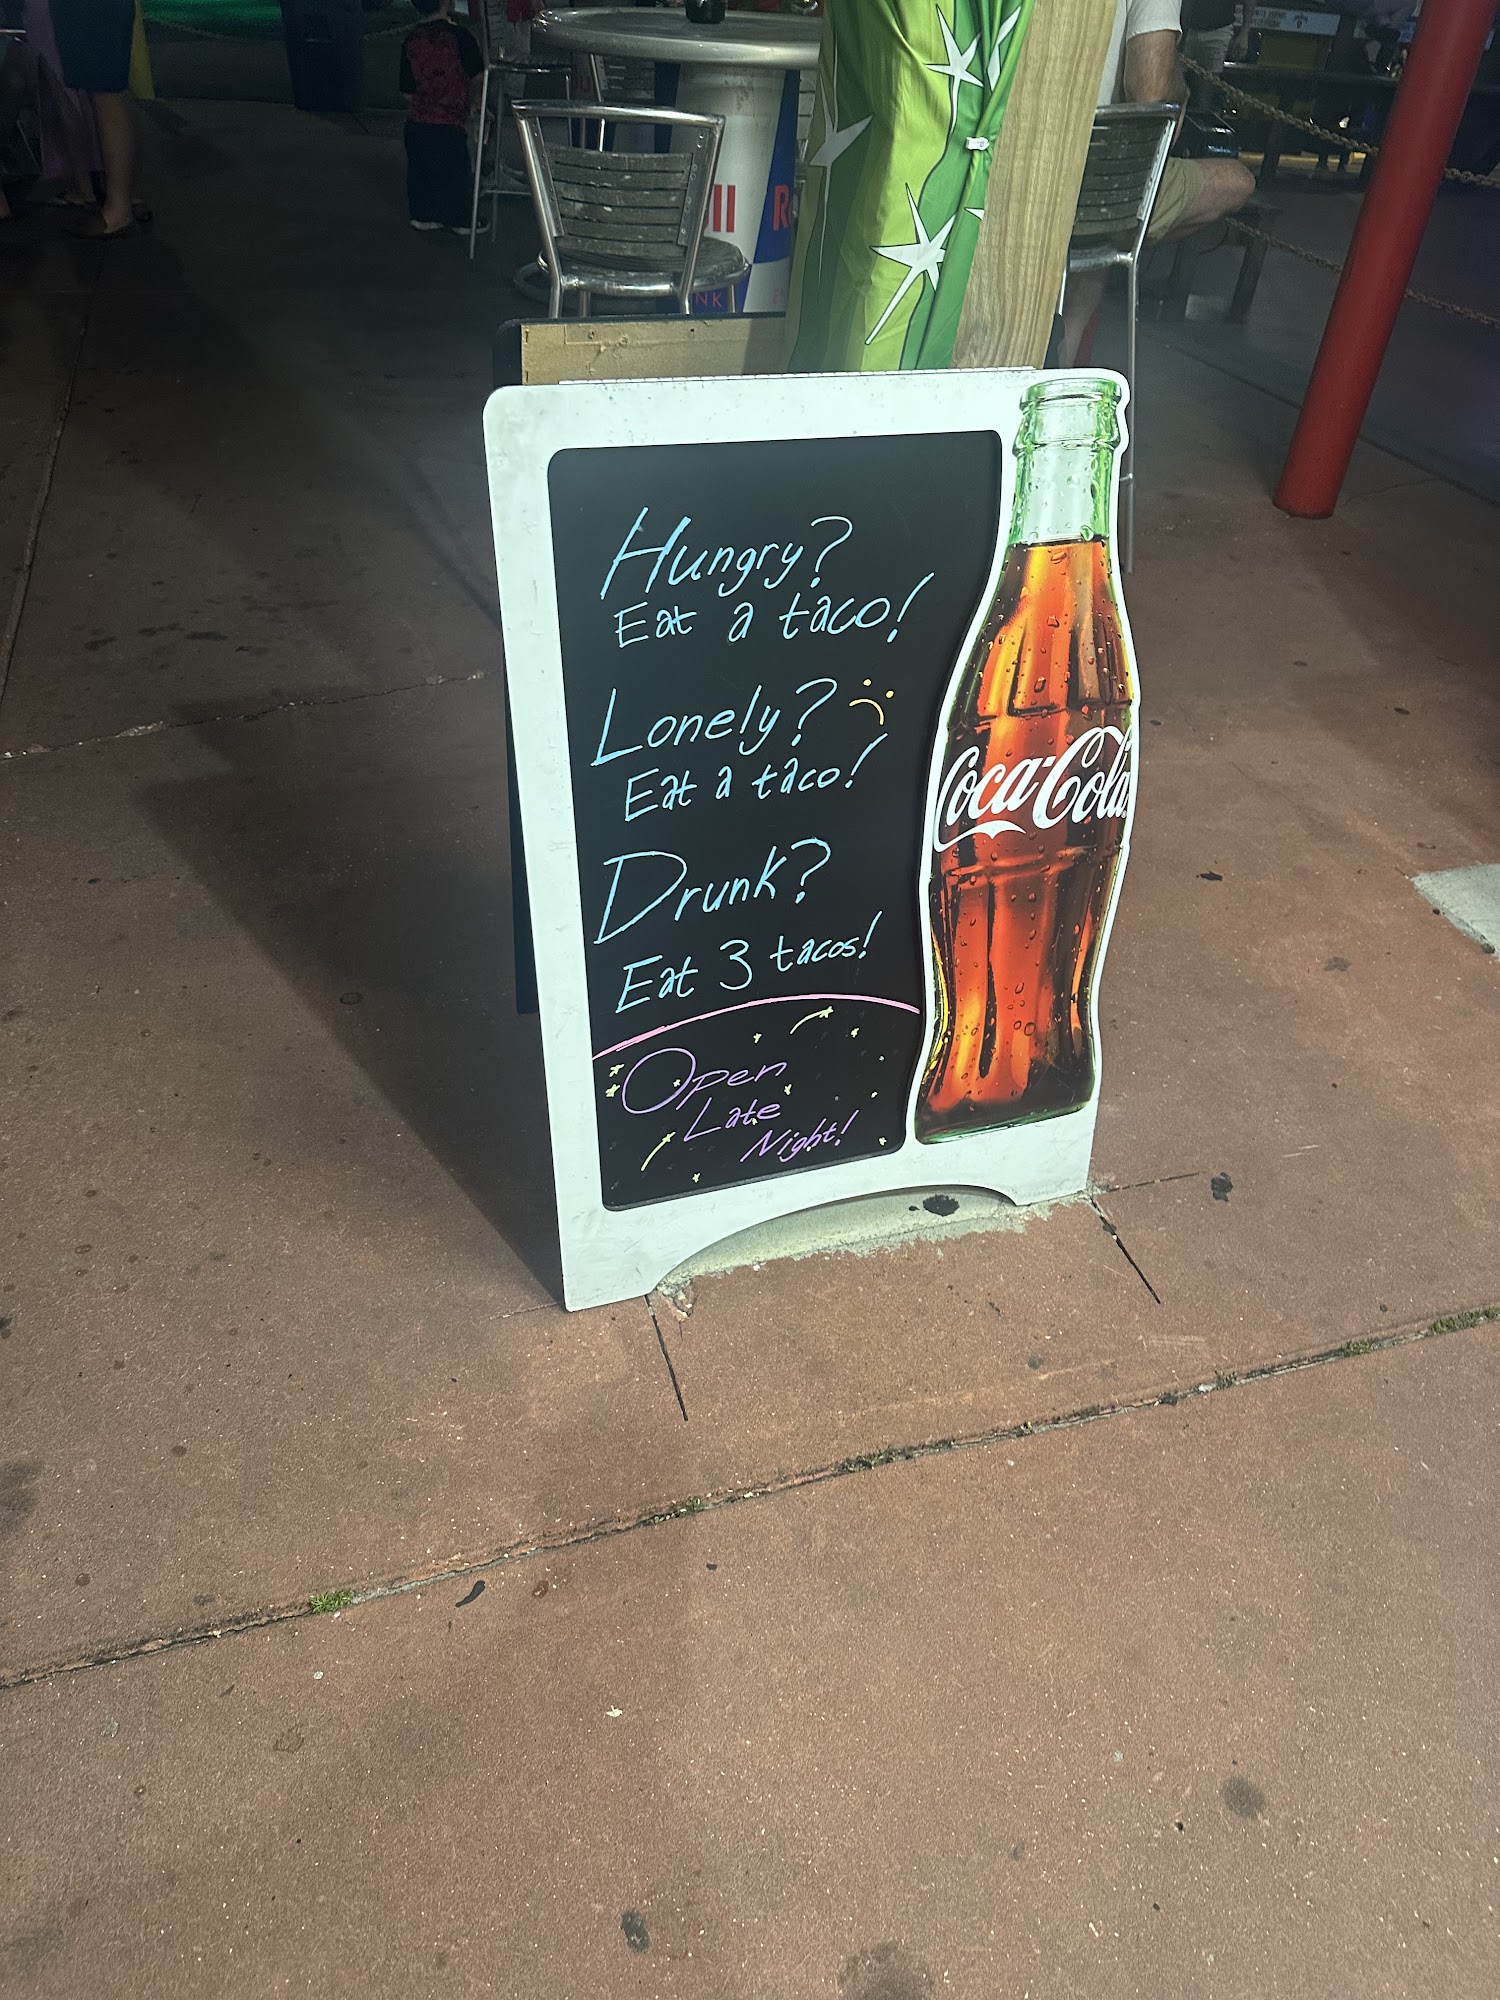 Hungry?
Eat a taco!
Lonely?
Eat a taco!
Drunk?
Eat 3 tacos!
Open
Late
Night!
Coca-Cola